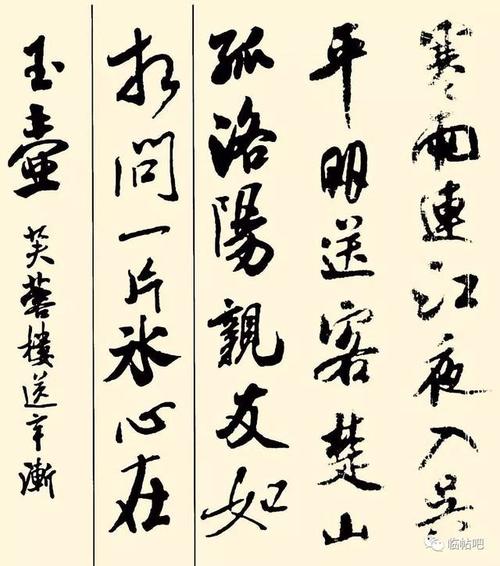 寒雨連江夜入吳
平明送客楚山
孤洛陽親友如
相問一片冰心在
玉壺 芙蓉樓送辛漸
临帖吧